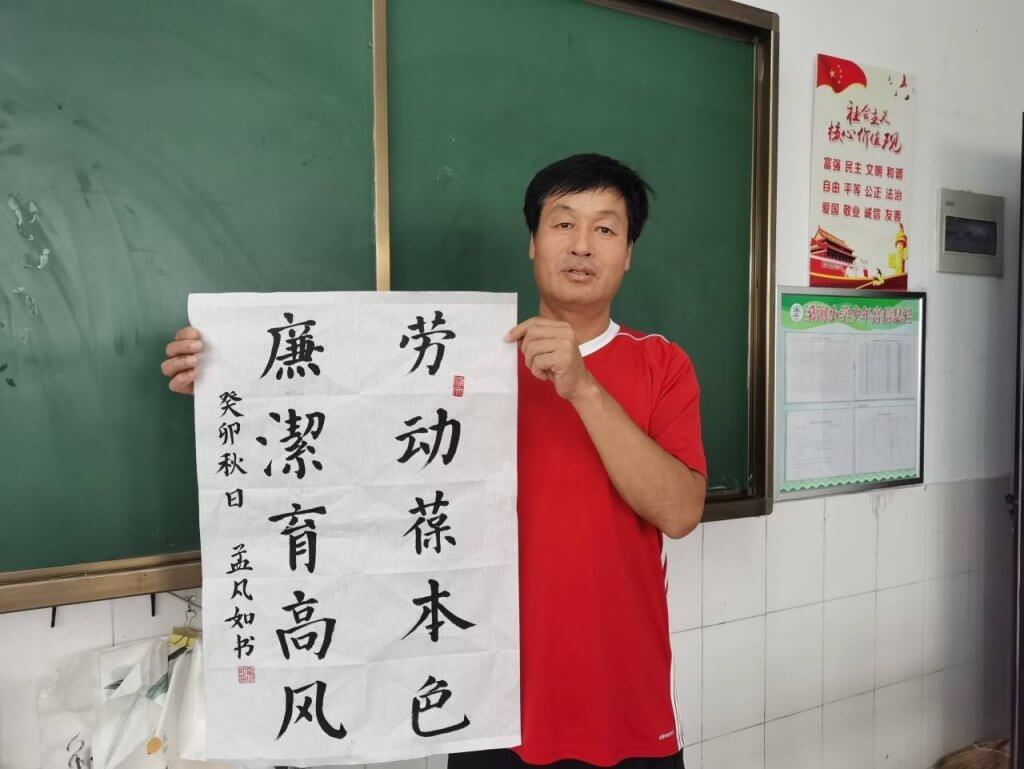 劳动葆本色
廉潔育高风
癸卯秋日 孟凡如书
社会主义
核心价值观
富强 民主 文明 和谐
自由 平等 公正 法治
爱国 敬业 诚信 友善
小学少年宫信息栏